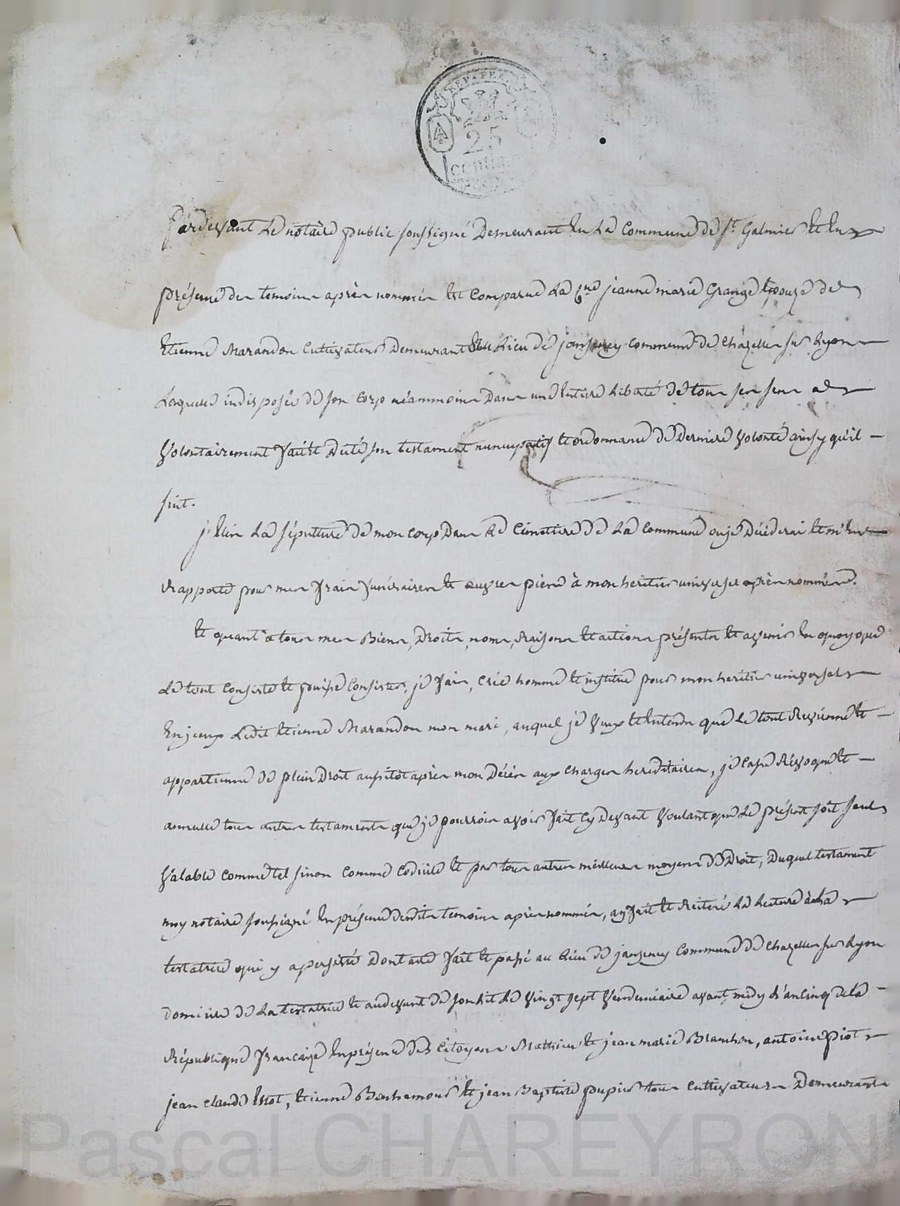 REP. FRA.
25
centimes
Pardevant Le notaire public soussigné Demeurant En La Commune de St. Galmier Et En
présence des temoins après nommés Est Comparue La Cne. jeanne marie Grange Epouse de
Etienne Marandon Cultivateur Demeurant au Lieu de janseney Commune de Chazelle sur Lyon
Laquelle indisposée de son Corp néammoins Dans une Entiere Liberté de tous ses sens a
Volontairement fait et Dicté son testament nuncupatif Et ordonnance de Derniere Volonté ainsy qu'il
suit.
j'Elis La sépulture de mon corp Dans Le Cimetiere de La Commune ou je Décéderai Et m'En
Rapporte pour mes frais funéraires Et œuvres pieuses à mon heritier universel après nommé.
Et quant à tous mes Biens, Droits, noms, Raisons Et actions présents Et avenir En quoy que
Le tout Consiste Et puisse Consister, je fais, Crée nomme Et institue pour mon heritier universel
Ledit Etienne Marandon mon mari, auquel je Veux Et Entends que Le tout Revienne Et
appartienne de plein Droit aussitot après mon Décès aux charges hereditaires, je Casse Révoque Et
annulle tous autres testaments que je pourrois avoir fait Cy Devant Voulant que Le présent soit seul
Valable comme tel sinon comme Codicile Et par tous autres meilleurs moyens de Droit, Duquel testament
moy notaire soussigné En présence desdits temoins après nommés, ay fait Et Reiteré La Lecture à La
testatrice qui y a persisté Dont acte fait Et passé au Lieu de janseney Commune de Chazelle sur Lyon
domicile de La testatrice Et audevant de son Lit Le Vingt sept Vendemiaire avant midy d'an Cinq de la
République française En présence des Citoyens Mathieu Et jean marie Blanchon, antoine Piot
jean claude Piot, Etienne Et jean Baptiste pupier tous Cultivateurs Demeurants
Pascal CHAREYRON